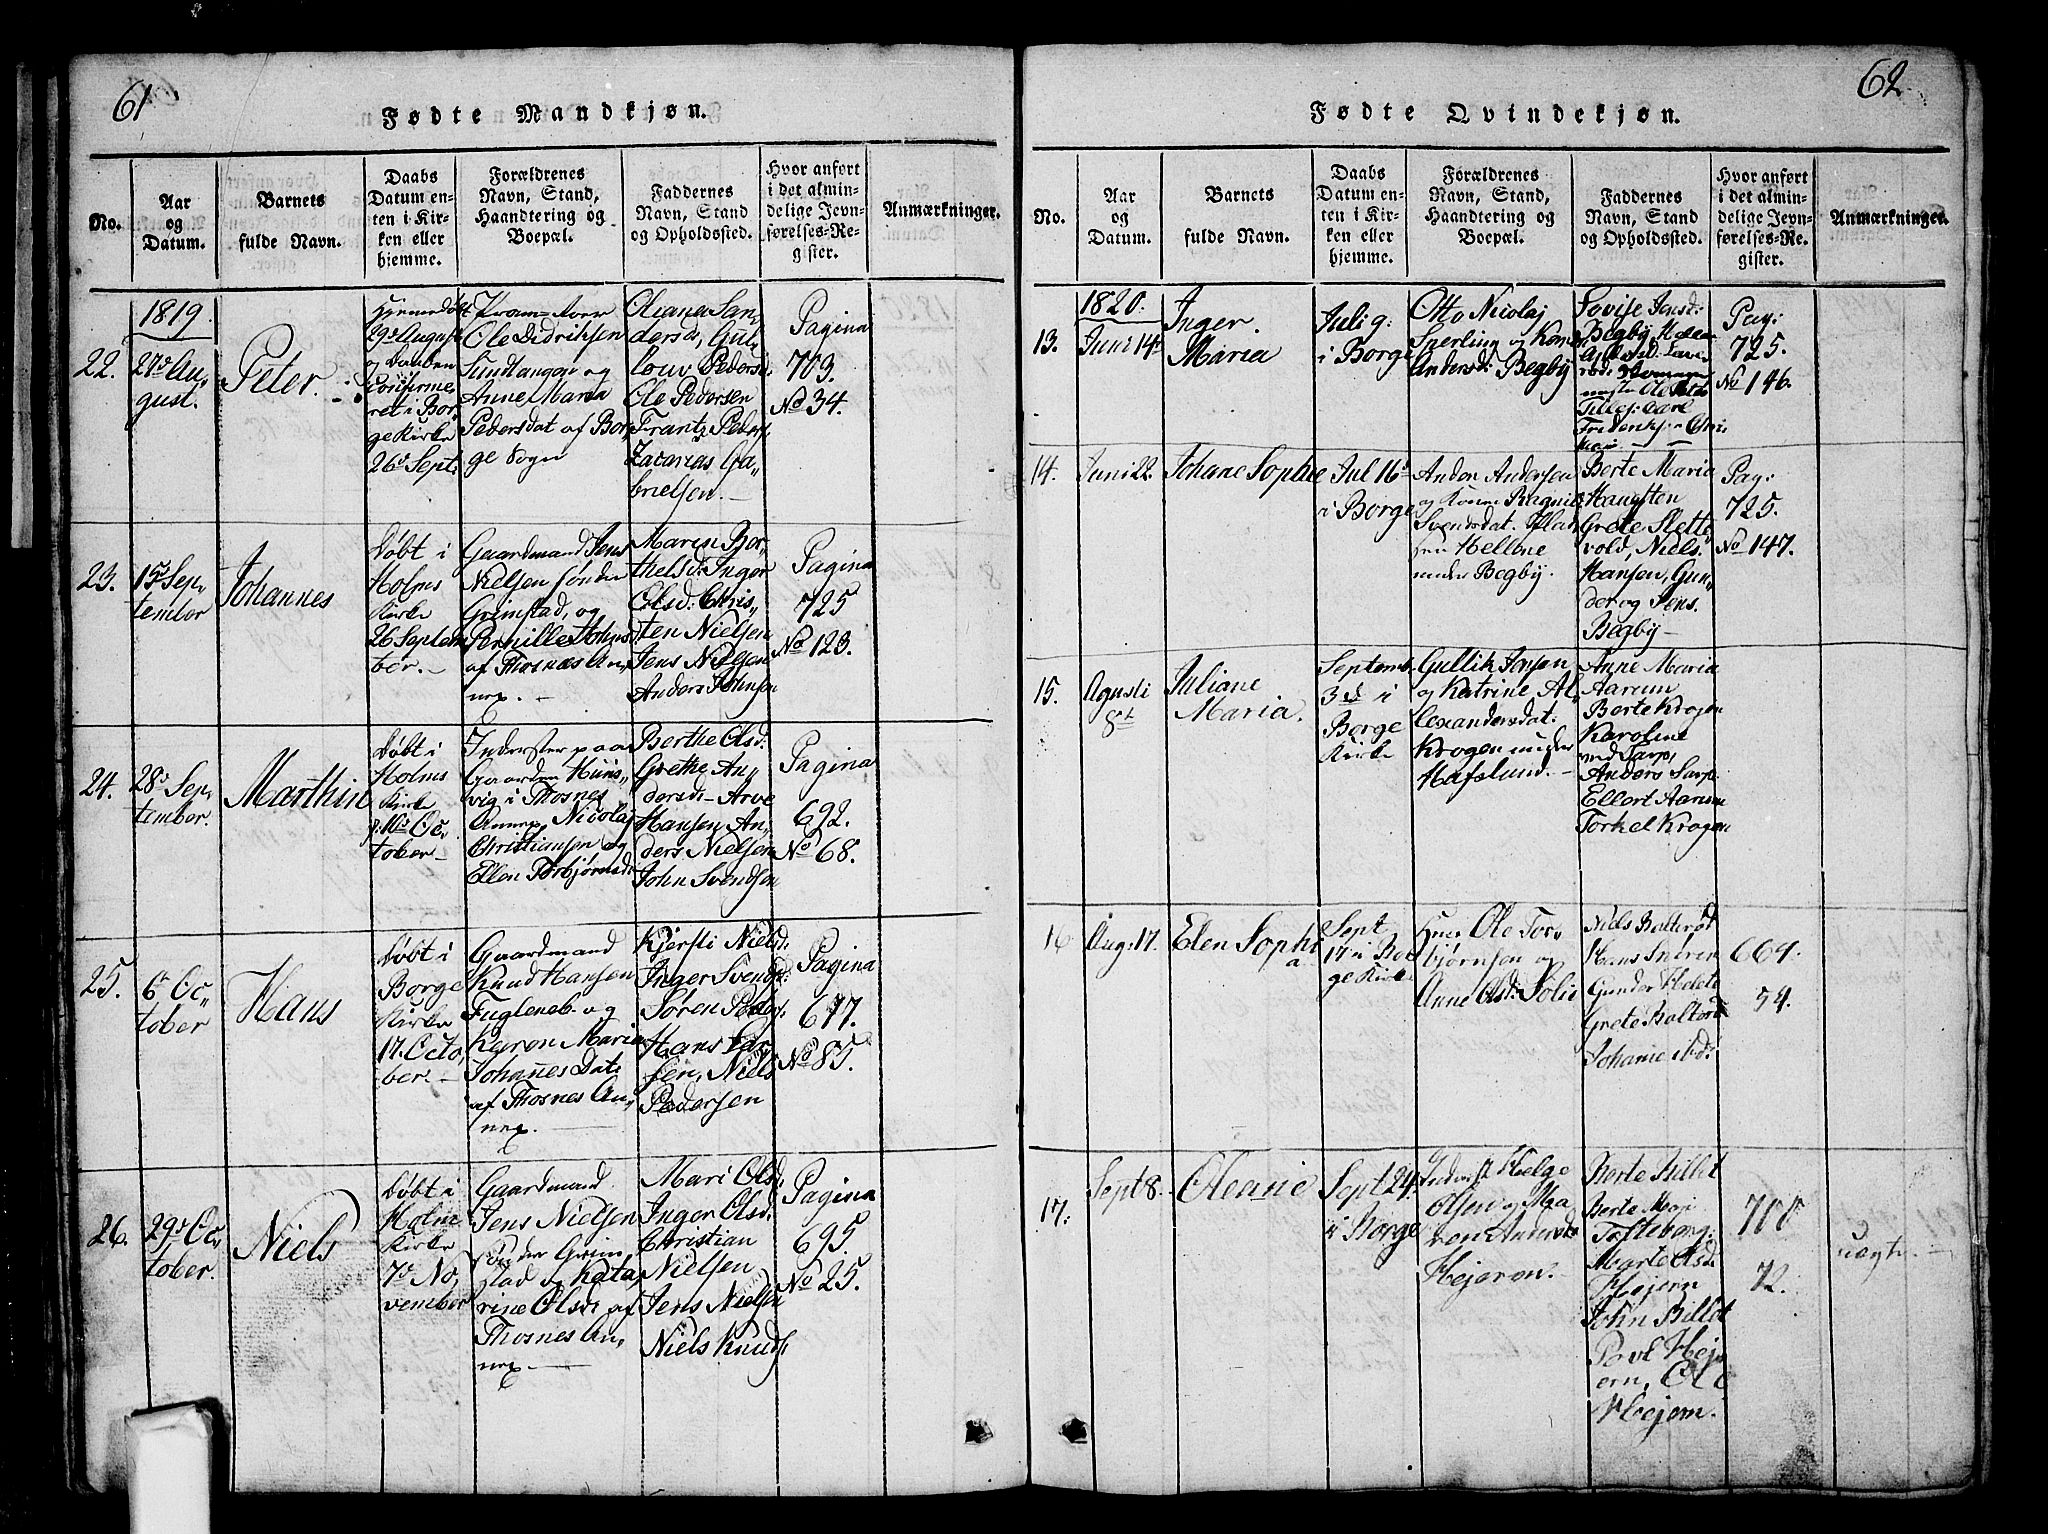 61
Fødte Mandkjøn.
No.
Aar
og
Datum.
Barnets
fulde Navn.
Daabs
Datum en-
ten i Kir-
ken eller
hjemme.
Forældrenes
Navn, Stand,
Haandtering og
Boepæl.
Faddernes
Navn, Stand
og Opholdssted.
Hvor anført
i det almin-
delige Jevn-
førelses-Re-
gister.
Anmærkninger.
22.
1819.
27de Au,,
gust.
Peter.
Hjemedøbt
29de August
og Daaben
Confirme
ret i Bor,,
ge Kirke
26de Sept.
Ole Didriksen
Sundløngen og
Anne Maria
Pedersdat af Bor,,
ge Sogn
Oleana San,,
dersd, Gul,,
louv Pedersd
Ole Pedersen
Frantz Peders.
Zacarias Ga,,
brielsen.
Pagina
703.
No 34.
23.
15de Sep,,
tember
Johannes
døbt i
Holms
Kirke
26 Septem
ber.
Gaardmand Jens
Nielsen sønder
Grimstad, og
Pernille Johns
af Thosnes An,,
nex.
Maren Bor,,
thelsd: Inger
Olsd: Chris,,
ten Nielsen
Jens Nielsen
Anders Johnsen
Pagina
725
No 123.
24.
28de Sep,,
tember.
Marthin
døbt i
Holms
Kirke
10de Oc,,
tober
Inderster paa
Gaarden Huns,,
vig i Thosnes
Annex Nicolaj
Christiansen og
Ellen Torbjørnsd:
Berthe Olsd:
Grethe An,,
dersd. Arve
Hansen An,,
ders Nielsen
John Svendsen
Pagina
692.
No 68.
25.
6te Oc,,
tober
Hans
døbt i
Borge
Kirke
17. Octo,,
ber.
Gaardmand
Knud Hansen
Fugleneb og
Karen Maria
Johannes Dat:
af Thosnes An,,
nex.
Kjersti Nielsd:
Inger Svendsd:
Søren Peders
Hans Lar,,
sen, Niels
Pedersen
Pagina
677.
No 85.
26.
29de Oc,,
tober.
Niels
døbt i
Holms
Kirke
7de No,,
vember
Gaardmand
Jens Nielsen
sønder Grim
stad og Kata,,
rine Olsd: af
Thosnes An,,
nex.
Mari Olsd:
Inger Olsd:
Christian
Nielsen
Jens Nielsen
Niels Knuds.
Pagina
695.
No 25.
62
Fødte Qvindekjøn.
No.
Aar
og
Datum.
Barnets
fulde Navn.
Daabs
Datum en-
ten i Kir-
ken eller
hjemme.
Forældrenes
Navn, Stand,
Haandtering og
Boepæl.
Faddernes
Navn, Stand
og Opholdssted.
Hvor anført
i det almin-
delige Jevn-
førelses-Re-
gister.
Anmærkninger.
13.
1820.
Juni 14de
Inger.
Maria
Juli 9:
i Borge
Otto Nicolaj
Sperling og Kone
Andersd: Begby
Lovise Jensd:
Begby
Pag:
725.
No 146.
14.
Juni 22.
Johane Sophie
Jul 16de
i Borge
Anders Andersen
og Kone Ragnild
Svendsdat.
Hellene
under Begby.
Berte Maria
Haugsten
Grete Slette
vold, Niels
Hansen, Gun,,
der og Jens.
Begby
Pag:
725.
No 147.
15.
Agusti
8de
Juliane
Maria.
Septemb.
3de i
Borge
Kirke
Gullik Jensen
og Katrine Al,,
exandersdat:
Krogen under
Hafslund.
Anne Maria
Aarum
Berte Krogen
Karoline
ved Sarp,
Anders Sarp
Ellert Aarum
Torkel Krogen
16
Aug: 17.
Elen Sophi
a
Sept
17 i Bor
ge Kirke
Huus Ole Tor,,
bjørnsen og
Anne Olsd:
Niels Balterød
Hans
Gunder
Grete Balterød
Johanne ibd:
669.
54.
17.
Sept 8.
Oleane
Sept 24.
i Borge
Inderst Helge
Olsen og Ma
ren Andersd:
Hejeren.
Berte Billet
Berte Mari
Tofteberg:
Marte Olsd.
Hejern
John Billet
Povl Hej
ern, Ole
Hejern.
708
72.
uægte.